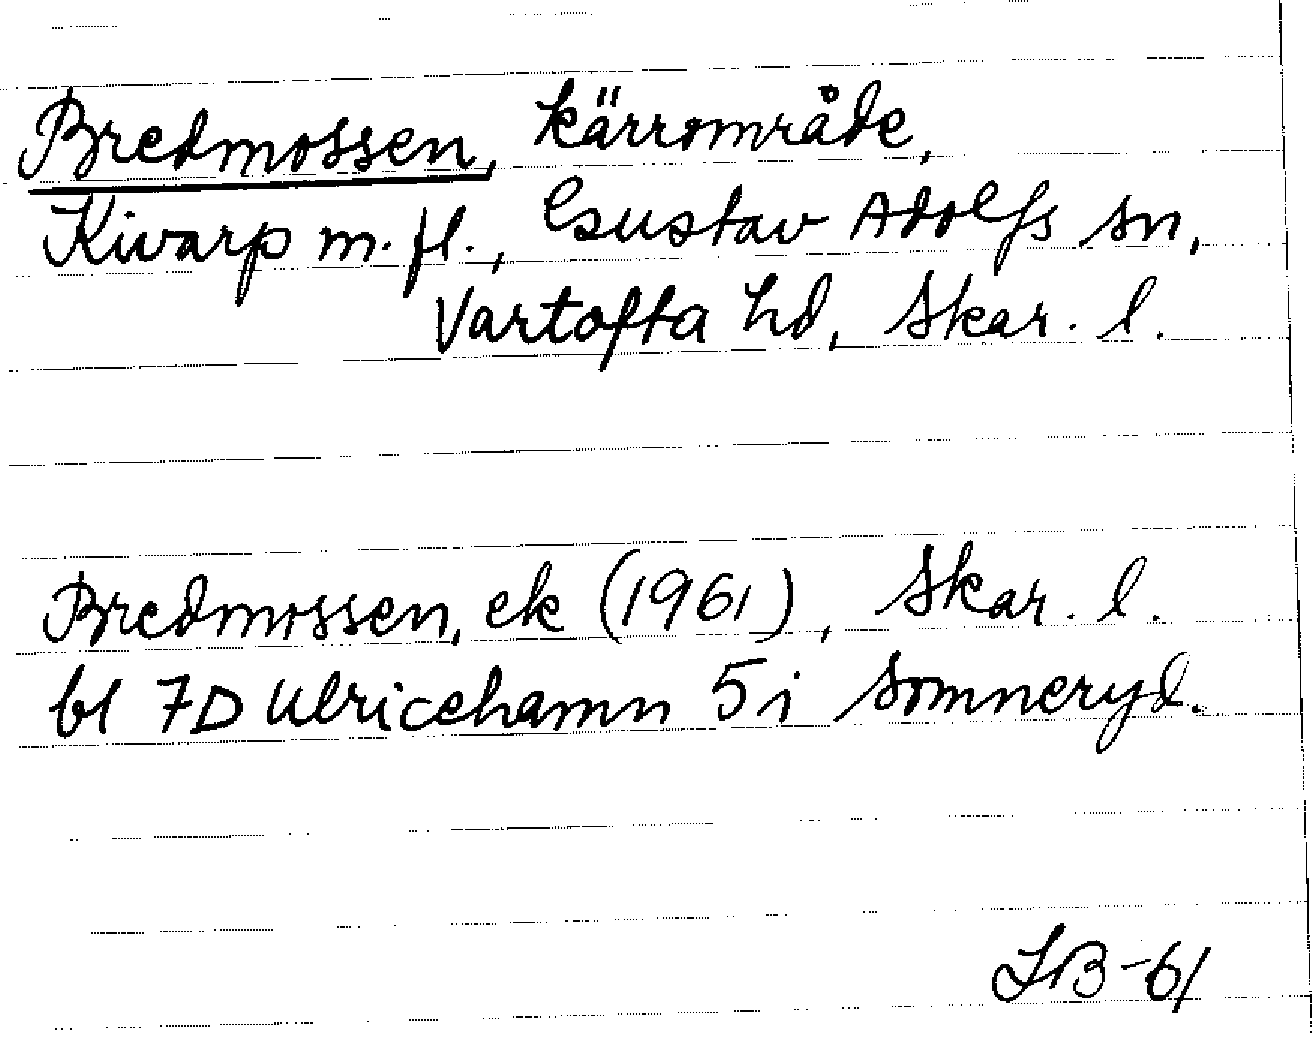 Bredmossen, kärrområde,
Kivarp m. fl., Gustav Adolfs sn,
Vartofta hd, Skar. l.
Bredmossen, ek (1961), Skar. l.
bl 7D Ulricehamn 5i Somneryd.
SB-61